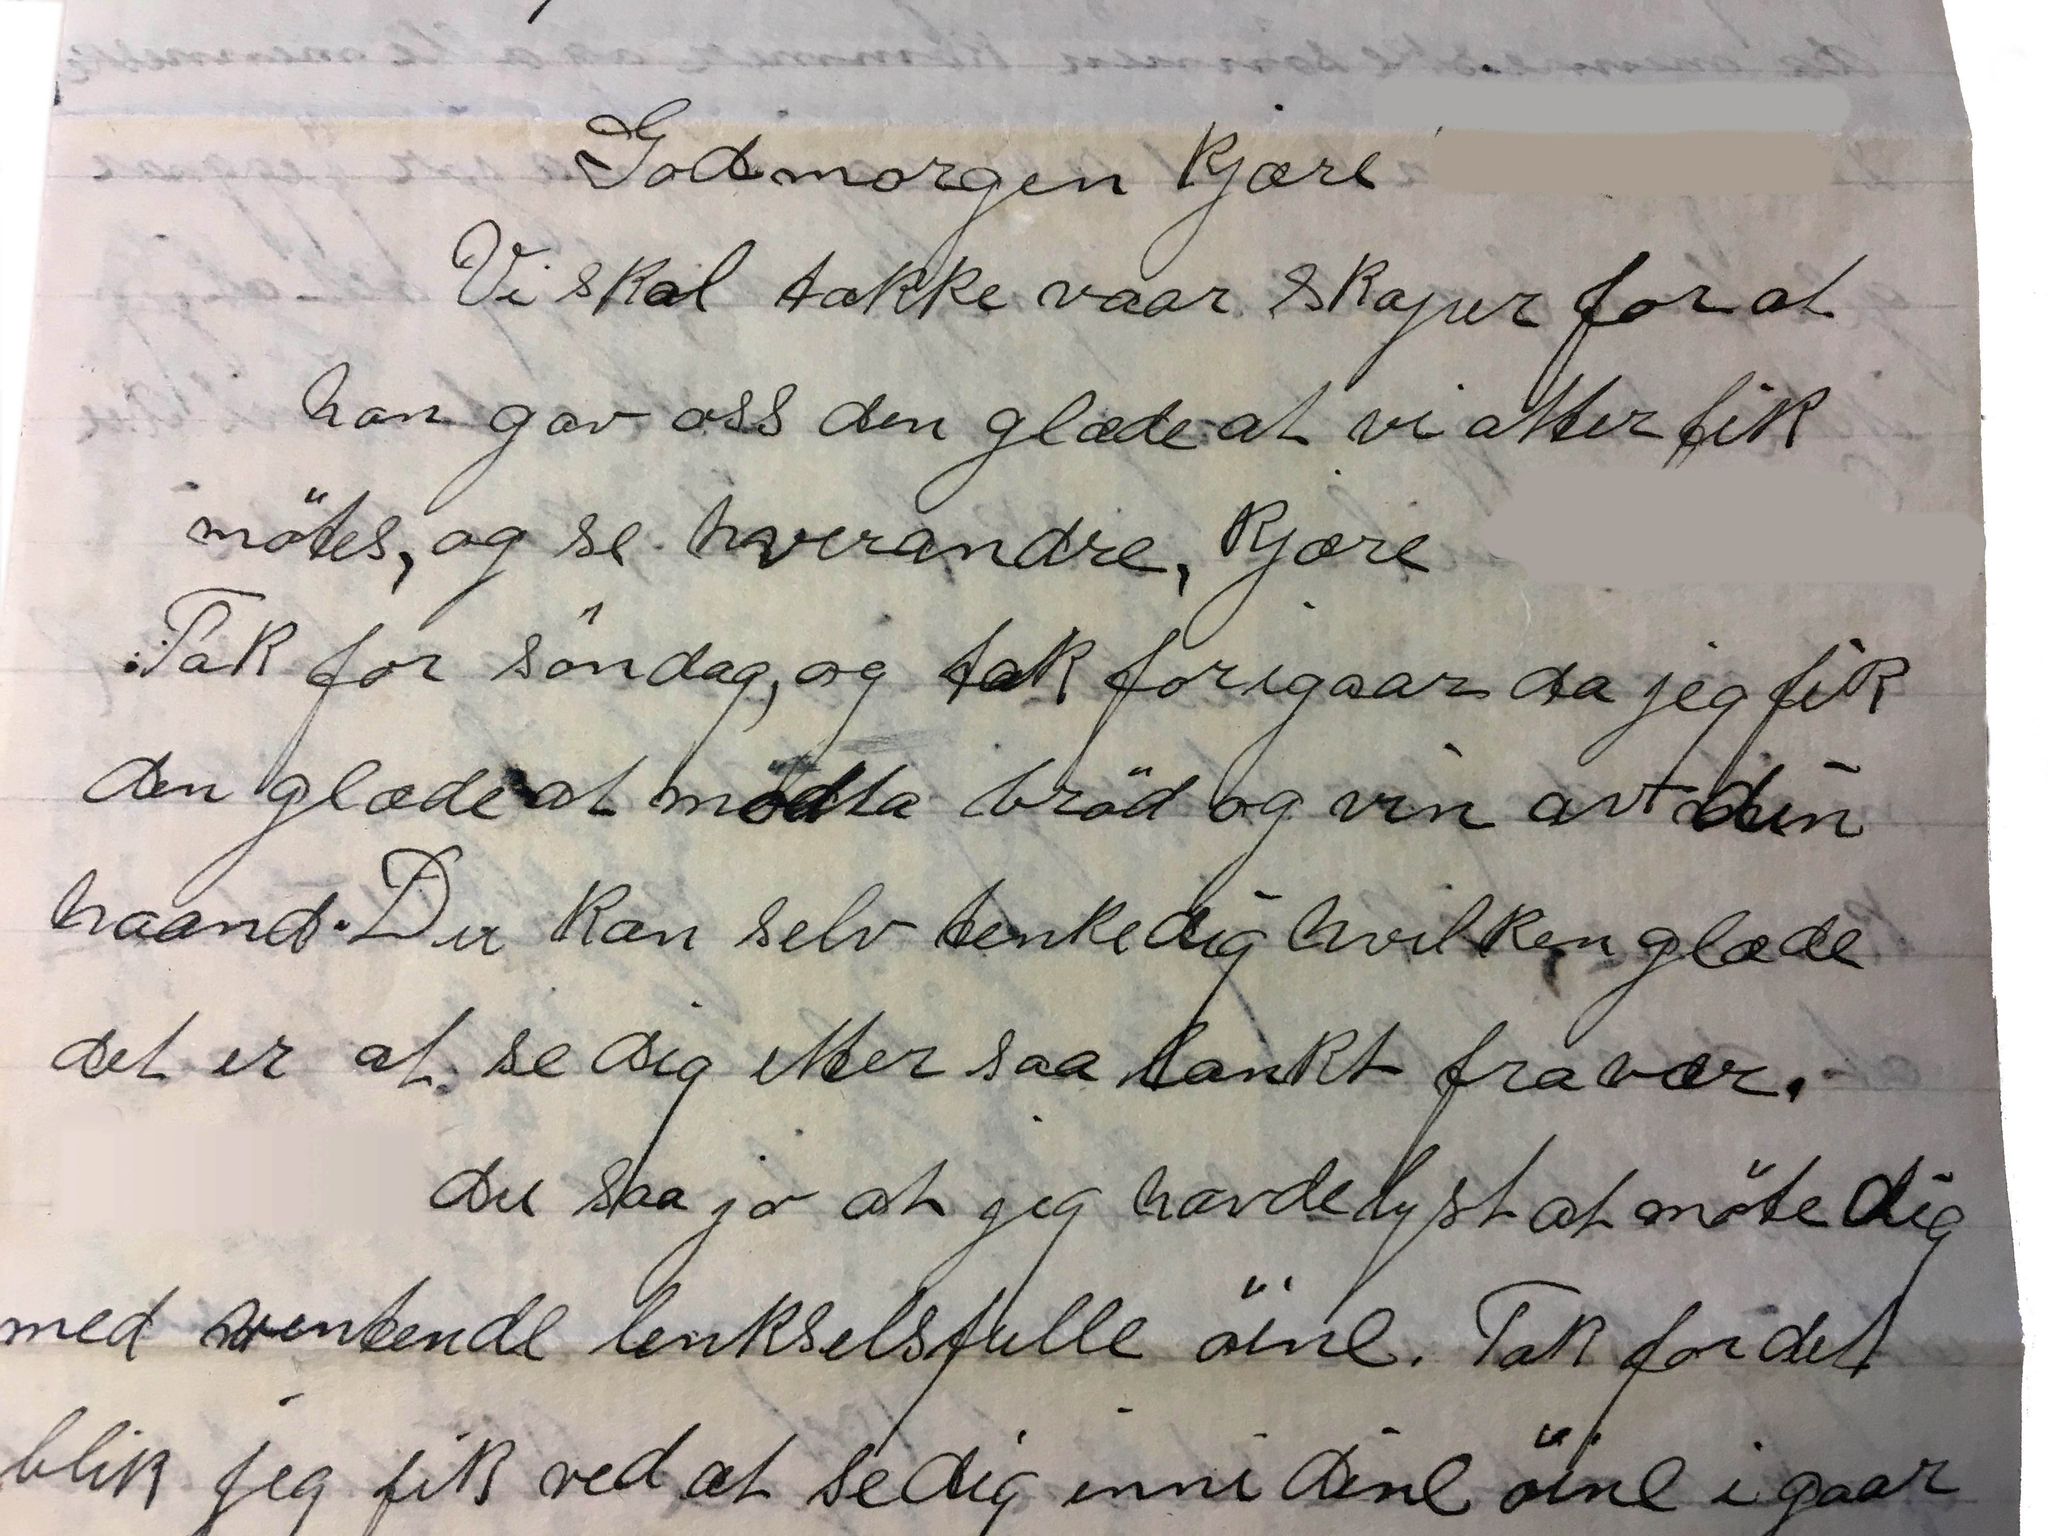 Godmorgen Kjære
Vi skal takke vaar skaper for at
han gav oss den glæde at vi atter fik
mötes, og se hverandre, Kjære
Tak for söndag, og tak for igaar da jeg fik
den glæde at modta bröd og vin av din
haand. Du kan selv tenke dig hvilken glæde
det er at se dig etter saa lankt fravær.
du saa jo at jeg havde lyst at möte dig
med ventende lenkselsfulle öine. Tak for det
blik jeg fik ved at se dig inni dine öine i gaar